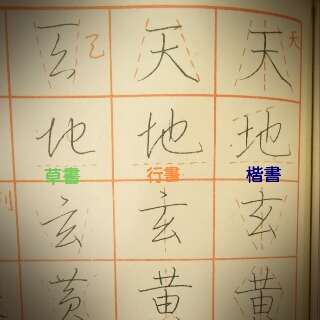 天 天 天
地 地 地
草書 行書 楷書
玄 玄 玄
黄 黄 黄